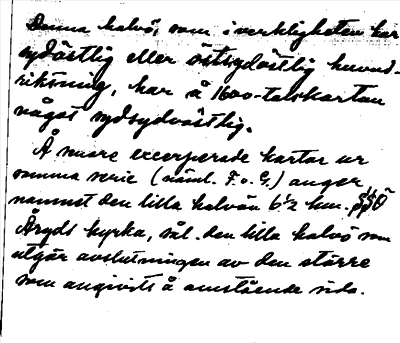 Denna halvö, som i verkligheten har
sydöstlig eller östsydöstlig huvud-
riktning, har å 1600-talskartan
något sydsydvästlig.
Å nuare excerperade kartor ur
samma serie (näml. F. o. G.) anger
namnet den lilla halvön 6½ km. SSÖ
Åryds kyrka, säl. den lilla halvö som
utgör avslutningen av den större
som angivits å omstående sida.